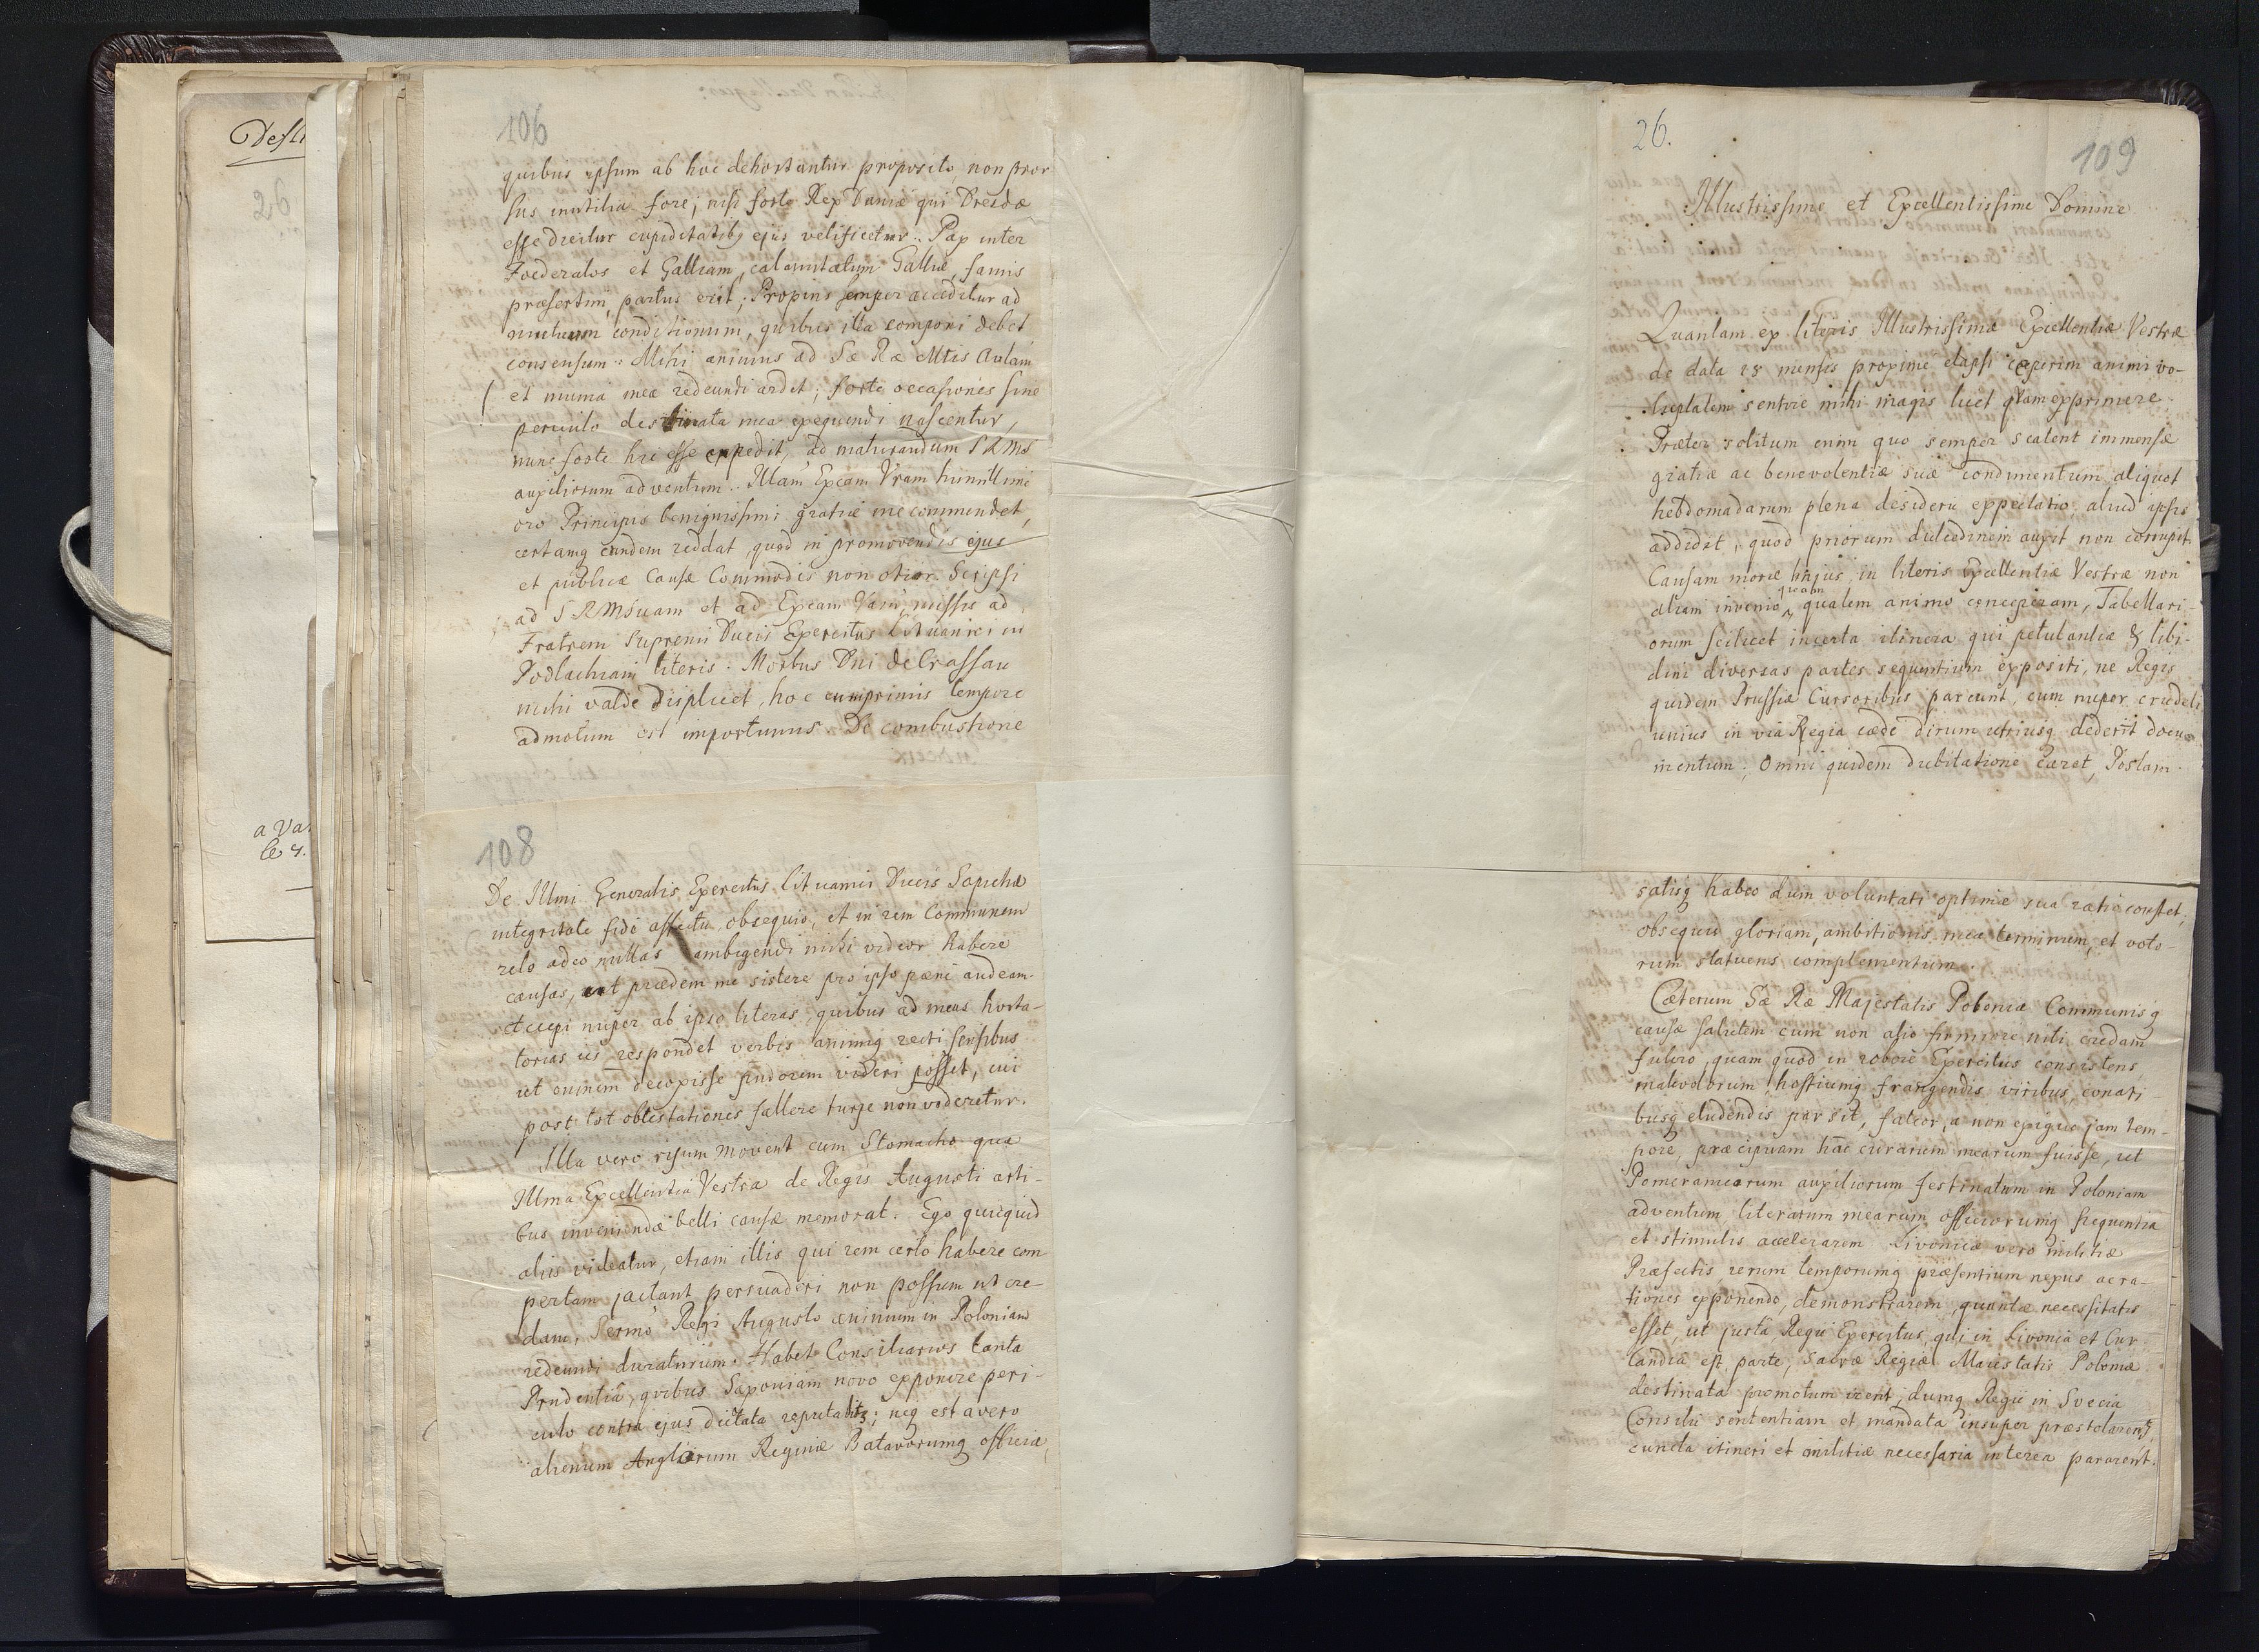 Desti
26
a Va
le 4.
106
quibus ipsum ab hoc dehortantur proposito, non pror
sus inutilia fore; nisi forte Rex Daniæ qui Dresdæ
esse dicitur cupiditatibq ejus velificetur. Pax inter
Foederatos et Galliam, calamitatum Galliæ, famis
præsertim, partus erit; Propius semper acceditur ad
mutuum conditionum, quibus illa componi debet,
consensum. Mihi animus ad Sæ Ræ Mtis Aulam
et munia mea redeundi ardet; forte occasiones sine
periculo destinata mea exequendi nascentur,
nunc forte hic esse expedit, ad maturandum SRMS
auxiliorum adventum. Illam Exeam Vram humillime
oro Principis benignissimi gratiæ me commendet,
certamq eandem reddat, quod in promovendis ejus
et publicæ Causæ Commodis non otior. Scripsi
ad SRMSuam et ad Exeam Vam, missis ad
Fratrem Supremi Ducis Exercitus Lituanici in
Podlachiam literis. Morbus Dni de Crassau
mihi valde displicet, hoc cumprimis tempore
admotum est importunus. De combustione
108
De Illmi Generalis Exercitus lituanici Ducis Sapiehæ
integritate fido affectu, obsequio, et in rem Communem
zelo adeo nullas ambigendi mihi videor habere
causas, ut prædem me sistere pro ipso pæne audeam.
Accepi nuper ab ipso literas, quibus ad meas horta-
torias iis respondet verbis animiq recti sensibus
ut omnem decoxisse pudorem videri posset, cui
post tot obtestationes fallere turpe non videretur.
Illa vero risum movent cum Stomacho quæ
Illma Excellentia Vestra de Regis Augusti arti-
bus inveniendæ belli causæ memorat. Ego quicquid
aliis videatur, etiam illis qui rem certo habere com
pertam jactant persuaderi non possum ut cre-
dam, Sermo Regi Augusto animum in Poloniam
redeundi duraturum. Habet Consiliarios tanta
Prudentiâ, quibus Saxoniam novo exponere peri-
culo contra ejus dictata reputabitq; neq est a vero
alienum Angliarum Reginæ Batavorumq officia,
26.
109
Illustrissime et Excellentissime Domine
Quantam ex literis Illustrissimæ Excellentiæ Vestræ
de data 18 mensis proxime elapsi ceperim animi vo-
luptatem sentire mihi magis licet quam exprimere.
Præter solitum enim quo semper scatent immensæ
gratiæ ac benevolentiæ suæ condimentum aliquot
hebdomadarum plena desiderii expectatio aliud ipsis
addidit, quod priorum dulcedinem auxit non corrupit.
Causam moræ hujus, in literis Excellentiæ Vestræ non
aliam invenio quam qualem animo conceperam, Tabellari-
orum scilicet incerta itinera qui petulantiæ & libi-
dini diversas partes sequentium expositi, ne Regis
quidem Prussiæ Cursoribus parcunt, cum nuper crudeli
unius in viâ Regia cæde dirum utriusq dederit docu-
mentum; Omni quidem dubitatione caret, Postam
satisq habeo dum voluntati optimæ sua ratio constet,
obsequii gloriam, ambitionis meæ terminum, et voto-
rum statuens complementum.
Cæterum Sæ Ræ Majestatis Poloniæ Communisq
causæ salutem cum non alio firmiore niti credam
fulcro, quam quod in robore Exercitus consistens,
malevolorum hostiumq frangendis viribus, conati
busq eludendis par sit, fateor, a non exiguo jam tem-
pore, præcipuam hanc curarum mearum fuisse, ut
Pomeranicorum auxiliorum festinatum in Poloniam
adventum literarum mearum officiorumq frequentia
et stimulis accelerarem. Livonicæ vero militiæ
Præfectis rerum temporumq præsentium nexus ac ra-
tiones exponendo, demonstrarem, quantæ necessitatis
esset, ut justa Regii Exercitus, qui in Livonia et Cur
landia est parte, Sacræ Regiæ Maiestatis Poloniæ
destinata promotum irent, dumq Regii in Svecia
Consilii sententiam et mandata insuper præstolarentq,
cuncta itineri et militiæ necessaria interea pararent.